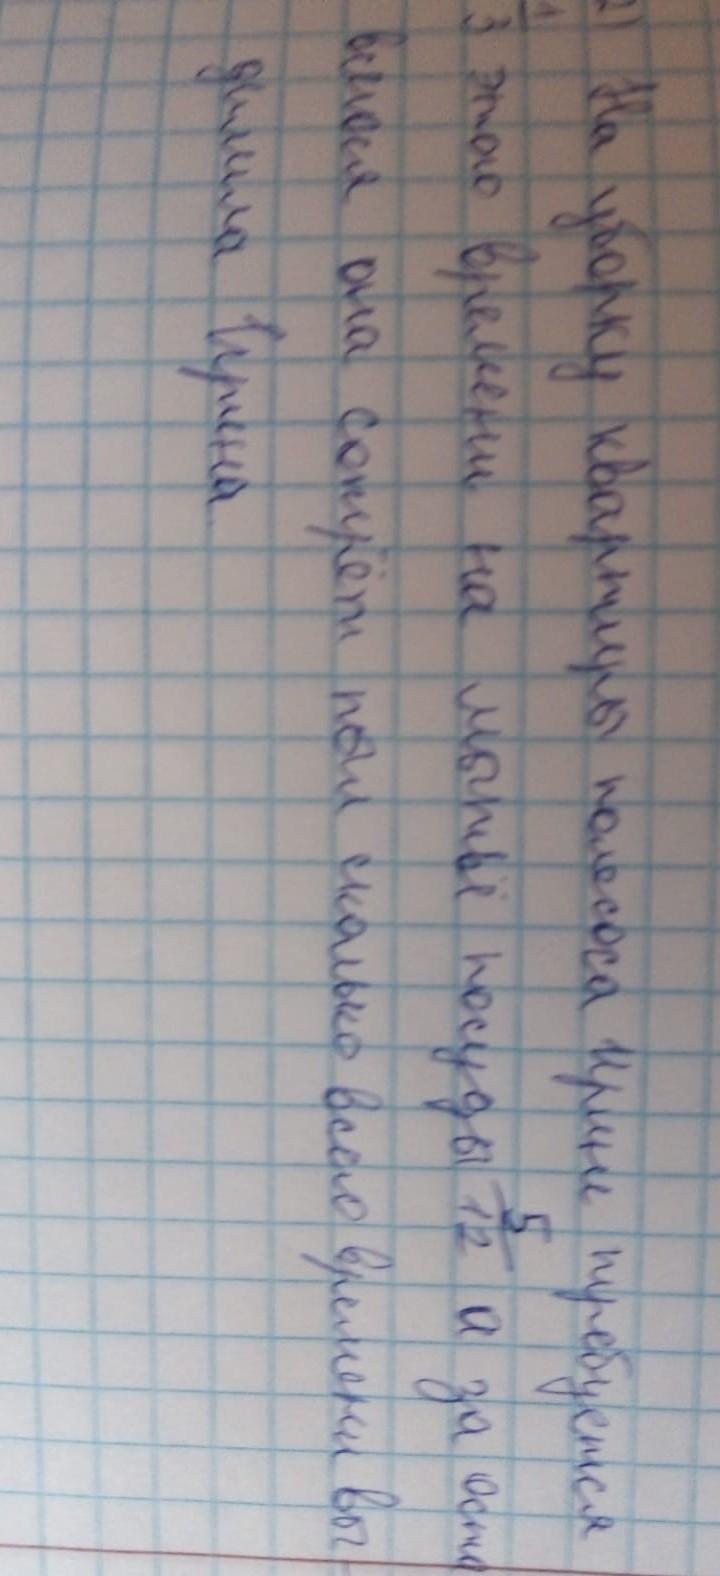 2) На уборку квартиры полесоса Ирине требуется
1/3 этого времени на мытьё посуды 5/12 а за оста
вшееся она сотрёт пыл сколько всего времени вы
делила Ирина